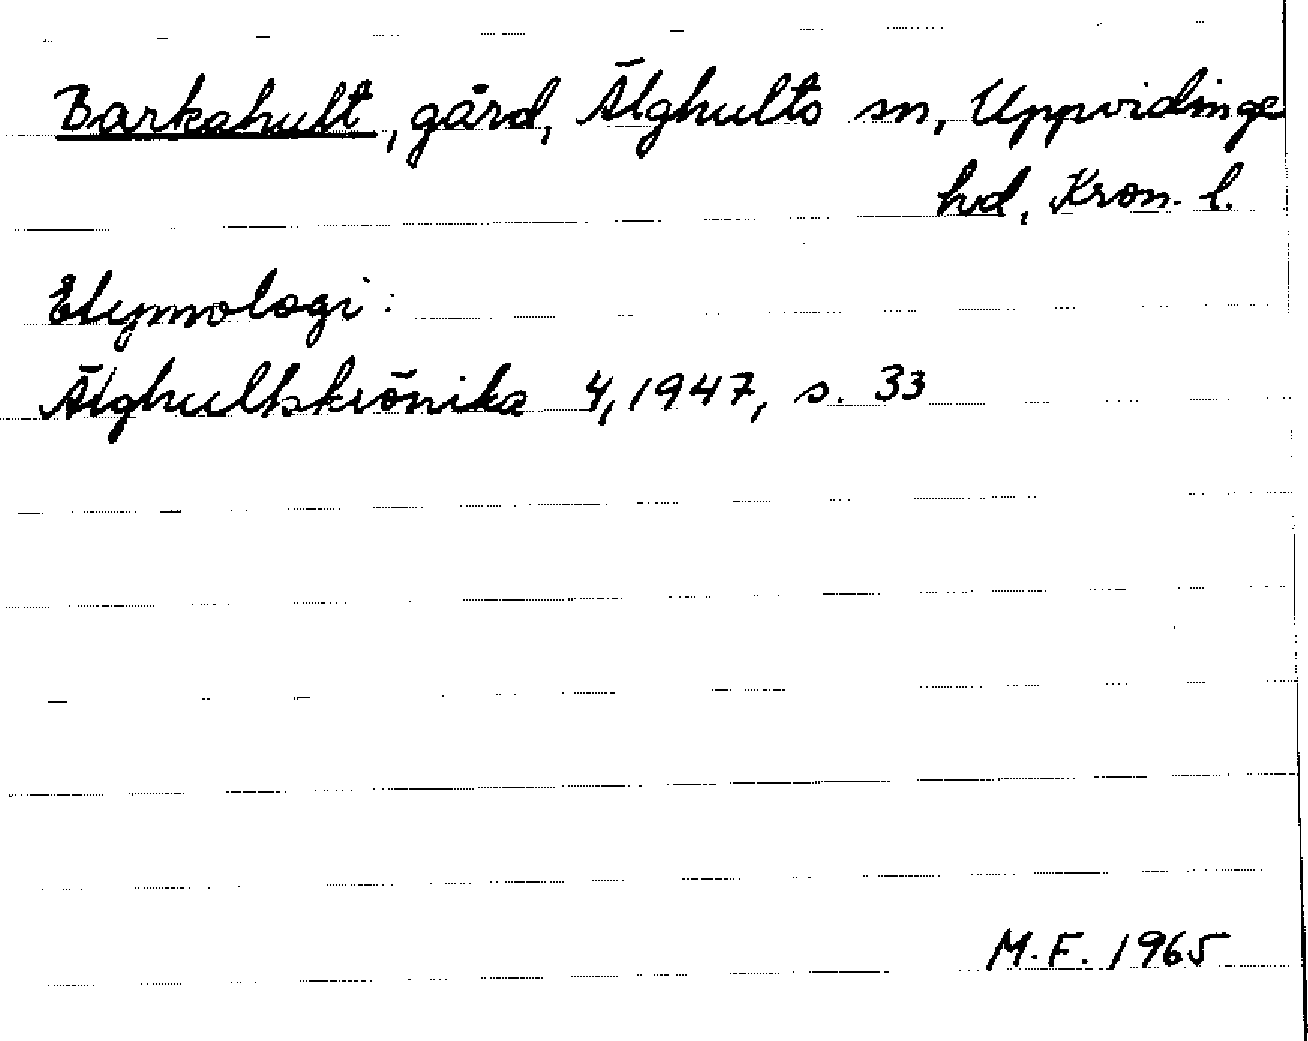 Barkahult, gård, Älghults sn, Uppvidinge
hd, Kron. l.
Etymologi:
Älghultskrönika 4, 1947, s. 33
M.F. 1965